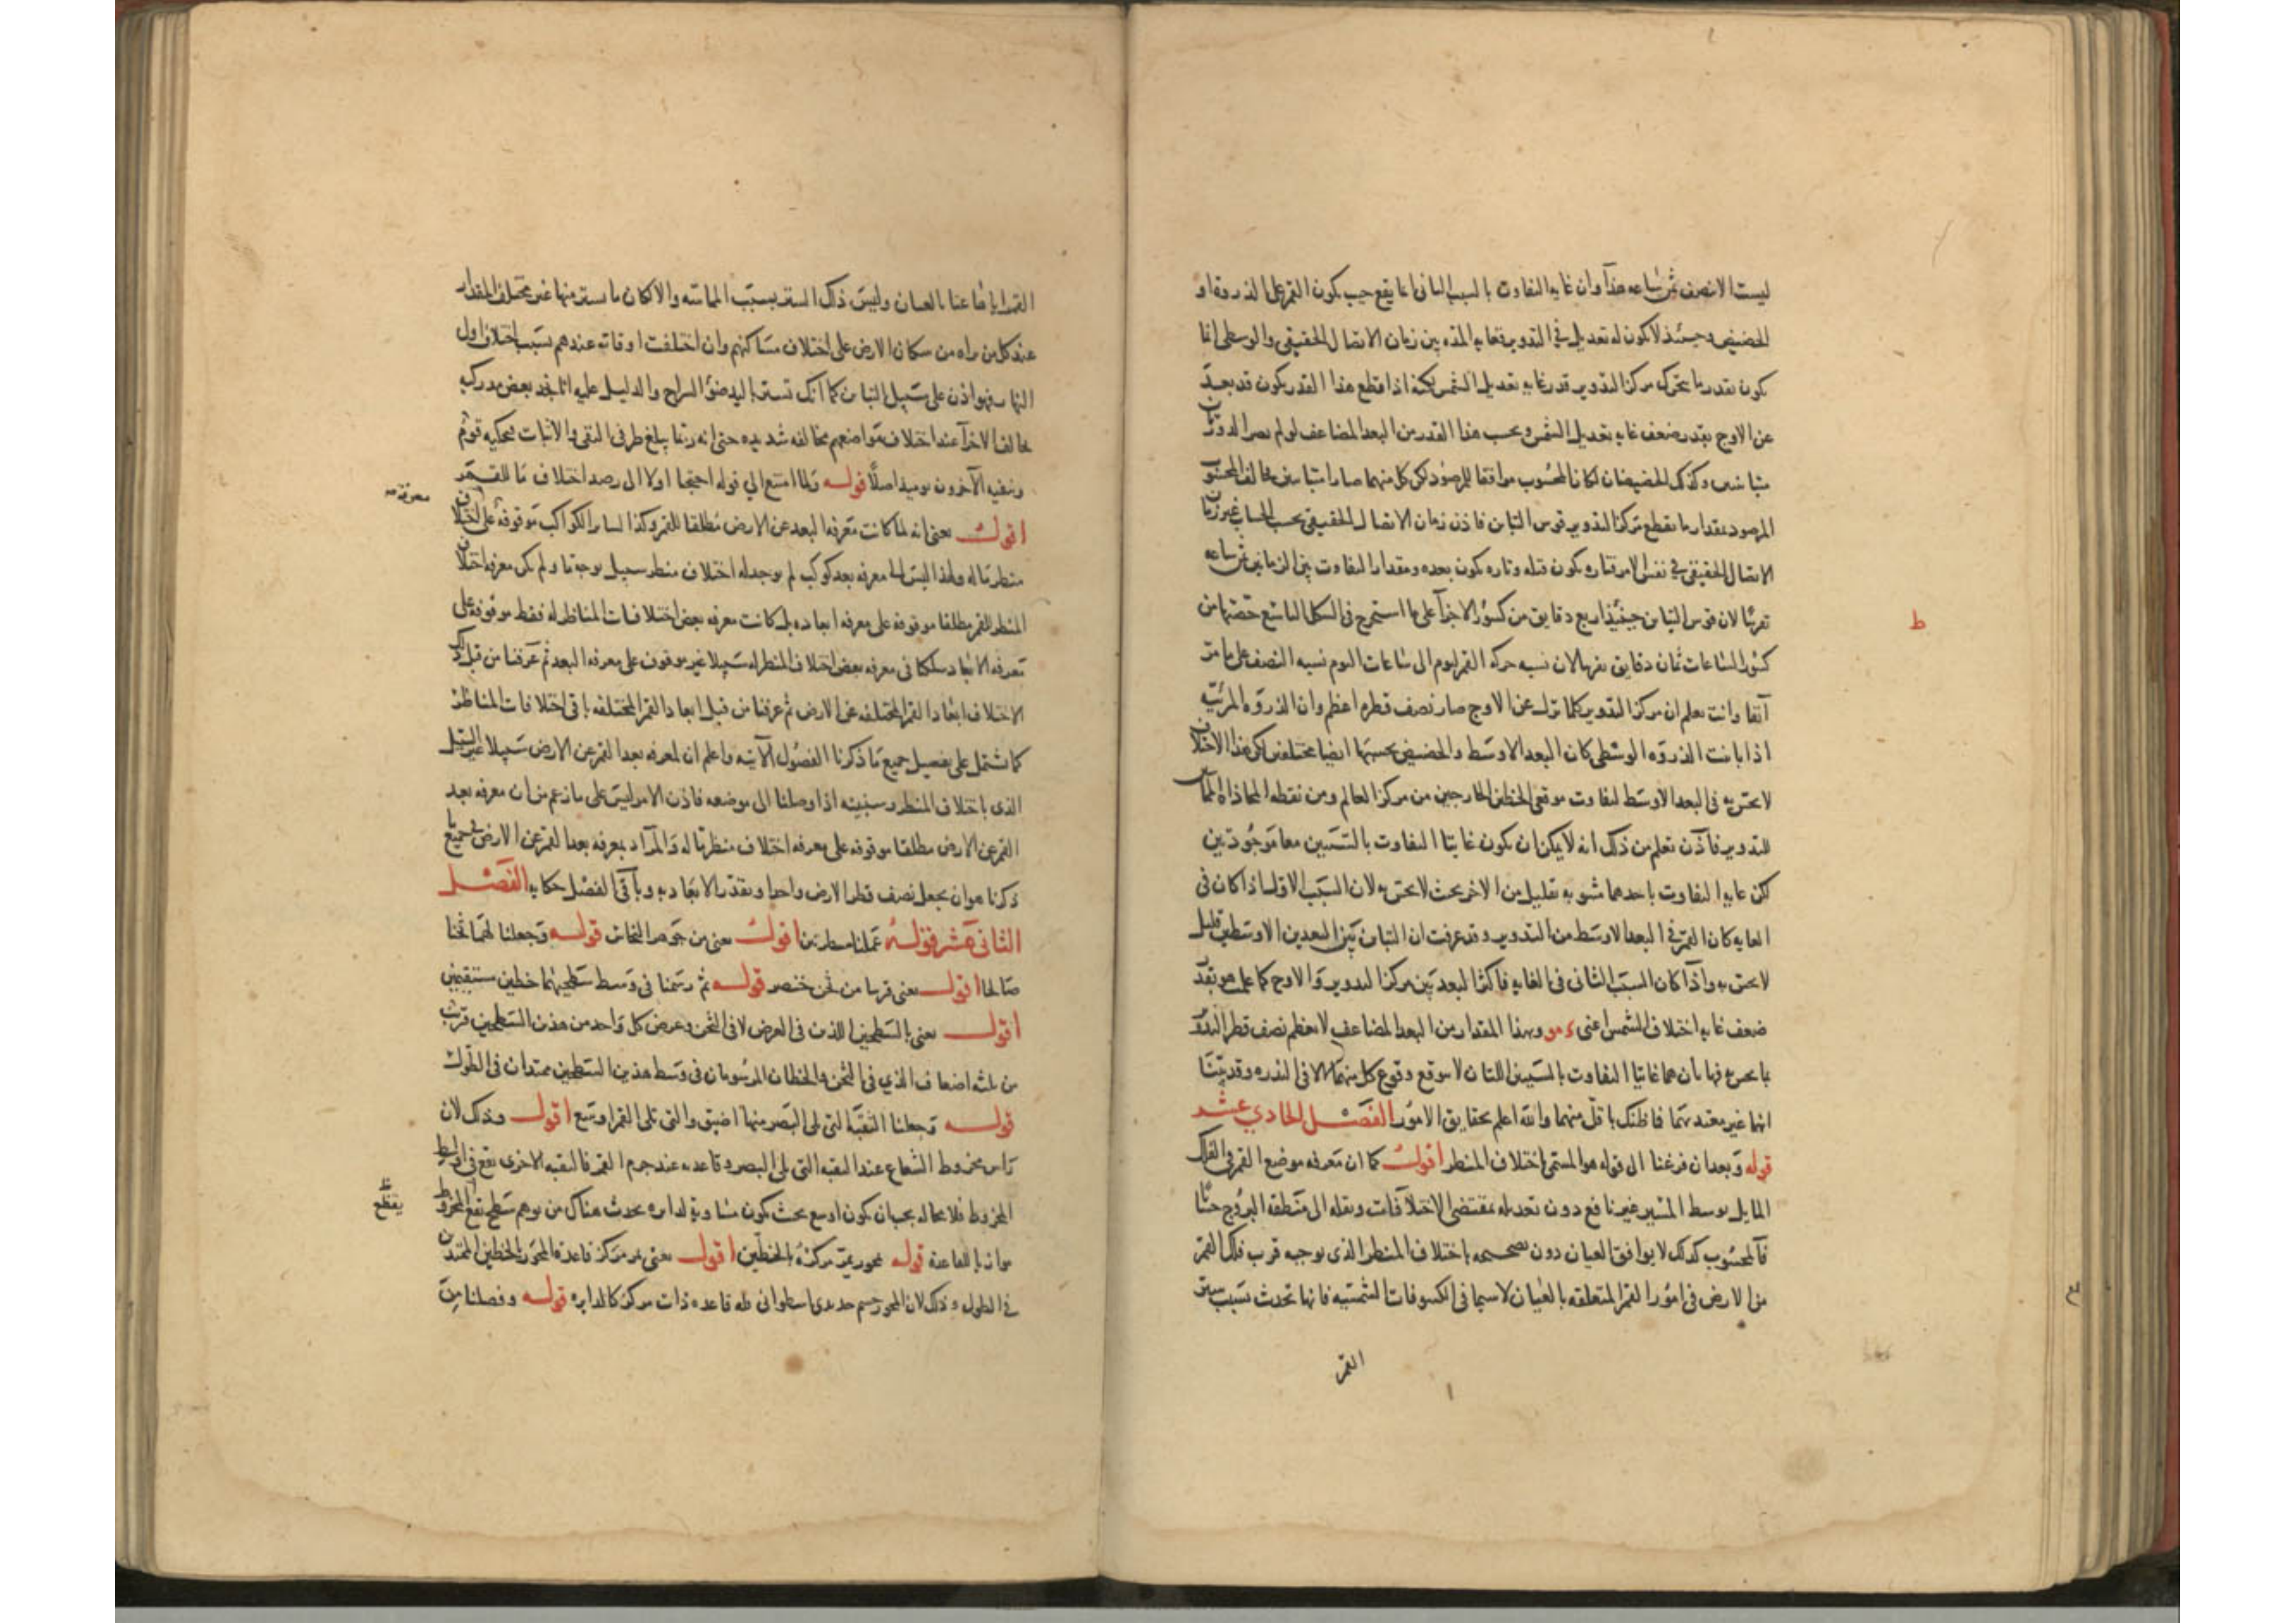 ليست الا نصف ثمن ساعه هذا وان غايه التفاوت بالسبب الثانى انما يقع حيث يكون القمر على الذروة او
الحضيض وحينئذ لا يكون له تعديل فى التدوير فغايه المدة بين زمان الاتصال الحقيقى والوسطى انما
يكون بقدر ما يتحرك مركز التدوير قدر غايه تعديل الشمس لكنه اذا قطع هذا القدر يكون قد بعد
عن الاوج بقدر ضعف غايه تعديل الشمس وبحسب هذا القدر من البعد المضاعف لو لم يصر الذروتان
متباينتين وكذلك الحضيضان لكان المحسوب موافقا للمرصود لكن كل منهما صارا متباينين فخالف المحسوب
المرصود بمقدار ما يقطع مركز التدوير قوس التباين فاذن زمان الاتصال الحقيقى بحسب الحساب غير زمان
الاتصال الحقيقى فى نفس الامر فتاره يكون قبله وتاره يكون بعده ومقدار التفاوت بين الزمانين ثمن ساعه
تقريبا لان قوس التباين حينئذ اربع دقايق من كسور الاجزآ على ما استخرج فى الشكل التاسع حصتها من
كسور الساعات ثمان دقايق تقريبا لان نسبه حركه القمر ليوم الى ساعات اليوم نسبه النصف على ما مر
آنفا وانت تعلم ان مركز التدوير كلما نزل عن الاوج صار نصف قطره اعظم وان الذروة المرئيه
اذا باينت الذروه الوسطى كان البعد الاوسط والحضيض بحسبها ايضا مختلفين لكن هذا الاختلاف
لا يحس به فى البعد الاوسط لتفاوت موقعى الخطين الخارجين من مركز العالم ومن نقطه المحاذاة المماس
للتدوير فاذن تعلم من ذلك انه لا يمكن ان يكون غايتا التفاوت بالسببين معا موجودتين
لكن غايه التفاوت باحدهما مشوبه بقليل من الاخر بحيث لا يحس به لان السبب الاول اذا كان فى
الغايه كان القمر فى البعد الاوسط من التدوير وقد عرفت ان التباين بين البعدين الاوسطين قليل
لا يحس به واذا كان السبب الثانى فى الغايه فاكثر البعد بين مركز التدوير والاوج كما علم هو بقدر
ضعف غايه اختلاف الشمس اعنى ء مو وبهذا المقدار من البعد المضاعف لا يعظم نصف قطر التدوير
انهما غير معتد بهما فما ظنك باقل منهما والله اعلم بحقايق الامور الفصل الحادي عشر
قوله وبعد ان فرغنا الى قوله هو المسمى اختلاف المنظر اقول كما ان معرفه موضع القمر فى الفلك
المايل بوسط المسير غير نافع دون تعديله بمقتضى الاختلافات ونقله الى منطقه البروج حسابا
فالمحسوب كذلك لا يوافق العيان دون تصحيحه باختلاف المنظر الذى يوجبه قرب فلك القمر
من الارض فى امور القمر المتعلقه بالعيان لا سيما فى الكسوفات الشمسيه فانها تحدث بسبب ستر
القمر
ط
القمر اياها عنا بالعيان وليس ذلك الستر بسبب المماسه والا لكان ما يستر منها غير مختلف المقدار
عند كل من راه من سكان الارض على اختلاف مساكنهم وان اختلفت اوقاته عندهم بسبب اختلاف اول
النهار فهو اذن على سبيل التباين كما انك تستر باليد ضؤ السراج والدليل عليه انا نجد بعض مدركيه
يخالف الاخر عند اختلاف مواضعهم مخالفه شديده حتى انه ربما يبلغ طرفى النفى والاثبات فيحكيه قوم
وينفيه الآخرون يوميذ اصلا قوله ولما امتنع الي قوله احتجنا اولا الى رصد اختلاف ما للقمر
اقول يعنى انه لما كانت معرفه البعد عن الارض مطلقا للقمر وكذا لساير الكواكب موقوفه على اختلاف
منظر ما له ولهذا ليس لنا معرفه بعد كوكب لم يوجد له اختلاف منظر سبيل بوجه ما ولم يكن معرفه اختلاف
المنظر للقمر مطلقا موقوفه على معرفه ابعاده بل كانت معرفه بعض اختلافات المناظر له فقط موقوفه على
معرفه الابعاد سلكنا فى معرفه بعض اختلاف المنظر له سبيلا غير موقوف على معرفه البعد ثم عرفنا من قبل ذلك
الاختلاف ابعاد القمر المختلفه عن الارض ثم عرفنا من قبل ابعاد القمر المختلفه باقى اختلافات المناظر
كما يشتمل على تفصيل جميع ما ذكرنا الفصول الآتيه واعلم ان لمعرفه بعد القمر عن الارض سبيلا غير السبيل
الذى باختلاف المنظر وسنبينه اذا وصلنا الى موضعه فاذن الامر ليس على ما زعم من ان معرفه بعد
القمر عن الارض مطلقا موقوفه على معرفه اختلاف منظر ما له والمراد بمعرفه بعد القمر عن الارض فى جميع ما
ذكرنا هو ان يجعل نصف قطر الارض واحدا ويقدر الابعاد به وباقى الفصل حكايه الفصل
الثانى عشر قوله عملنا مسطرتين اقول يعنى من جوهر النحاس قوله وجعلنا لهما ثخنا
صالحا اقول يعنى قريبا من ثخن خنصر قوله ثم رسمنا فى وسط سطحيهما خطين مستقيمين
اقول يعنى بالسطحين اللذين فى العرض لا فى الثخن وعرض كل واحد من هذين السطحين قريب
من ثلثه اضعاف الذي فى الثخن والخطان المرسومان فى وسط هذين السطحين ممتدان فى الطول
قوله وجعلنا الثقبه التى تلى البصر منهما اضيق والتى تلى القمر اوسع اقول وذلك لان
راس مخروط الشعاع عند الثقبه التى تلى البصر وقاعدته عند جرم القمر فالثقبه الاخرى تقع فى اواسط
المخروط فلا محاله يجب ان يكون اوسع بحيث يكون مساوية لدايره يحدث هناك من توهم سطح يقطع المخروط
موازيا للقاعدة قوله بمحور يمر مركزه بالخطين اقول يعنى يمر مركز قاعدة المحور بالخطين الممتدين
فى الطول وذلك لان المحور جسم حديدى اسطوانى فله قاعده ذات مركز كالدايره قوله وفصلنا من
معرفه
يقطع